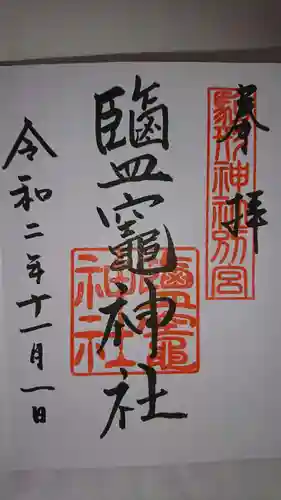 奉拝
駿河神社別宮
鹽竈神社
鹽竈神社
令和二年十一月一日